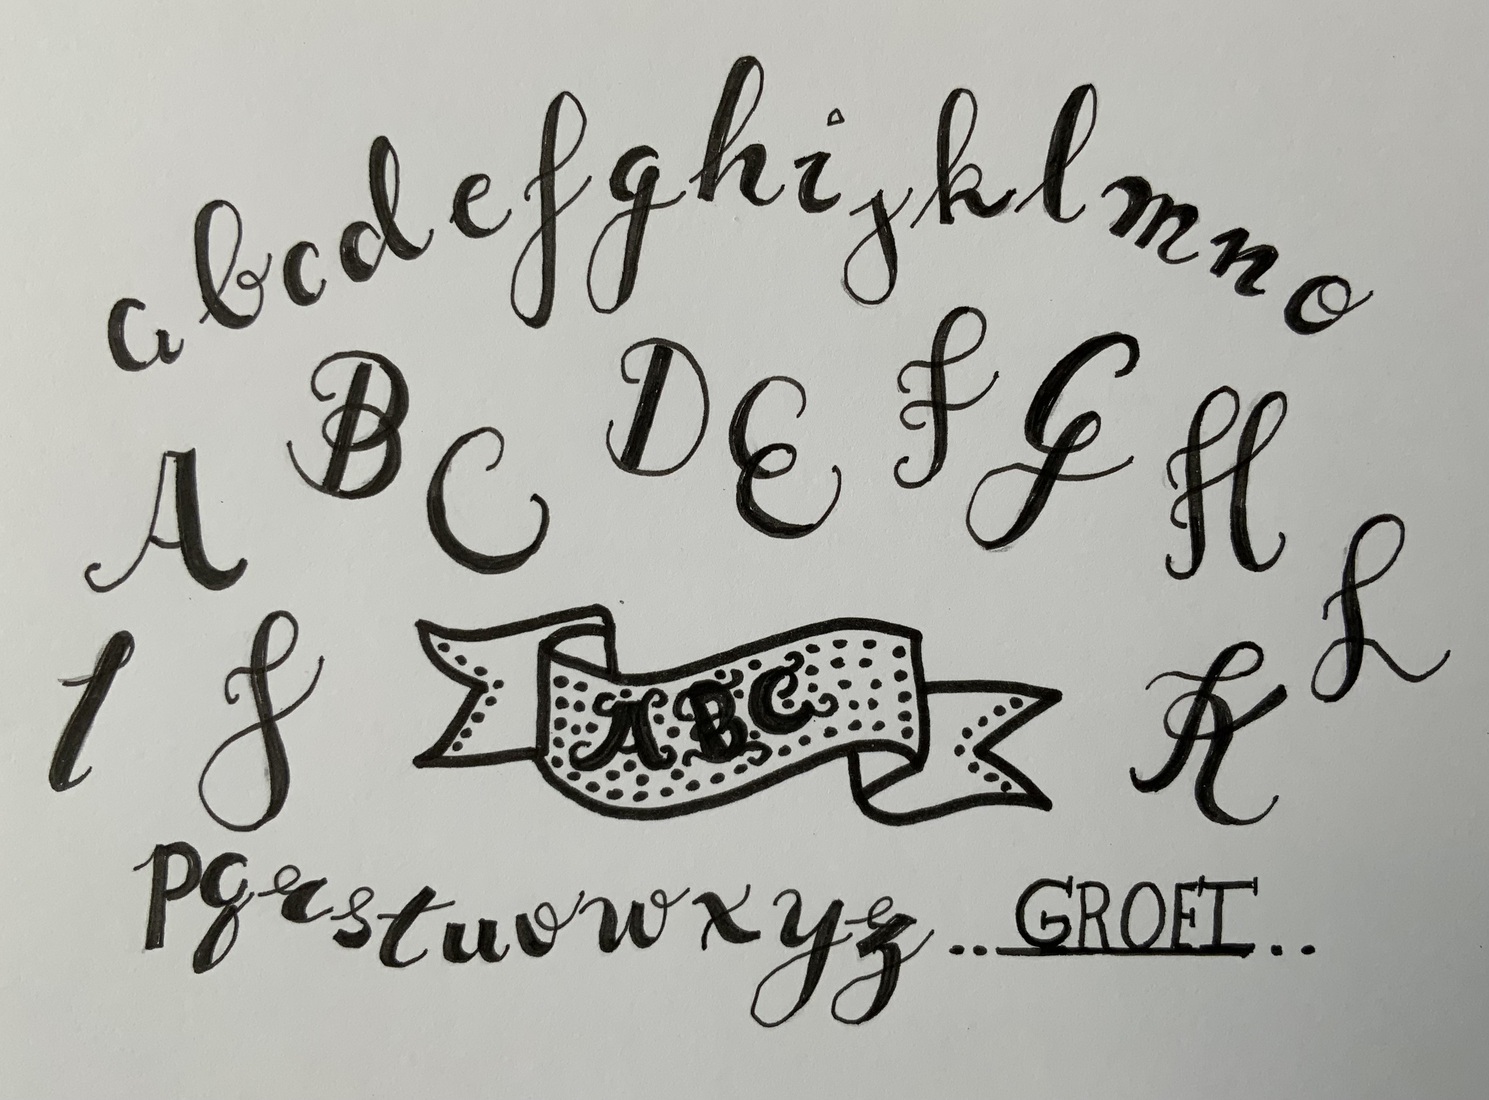 abcdefghijklmno
A B C D E F G H
I J K L
ABC
pqrstuvwxyz ... GROET ..